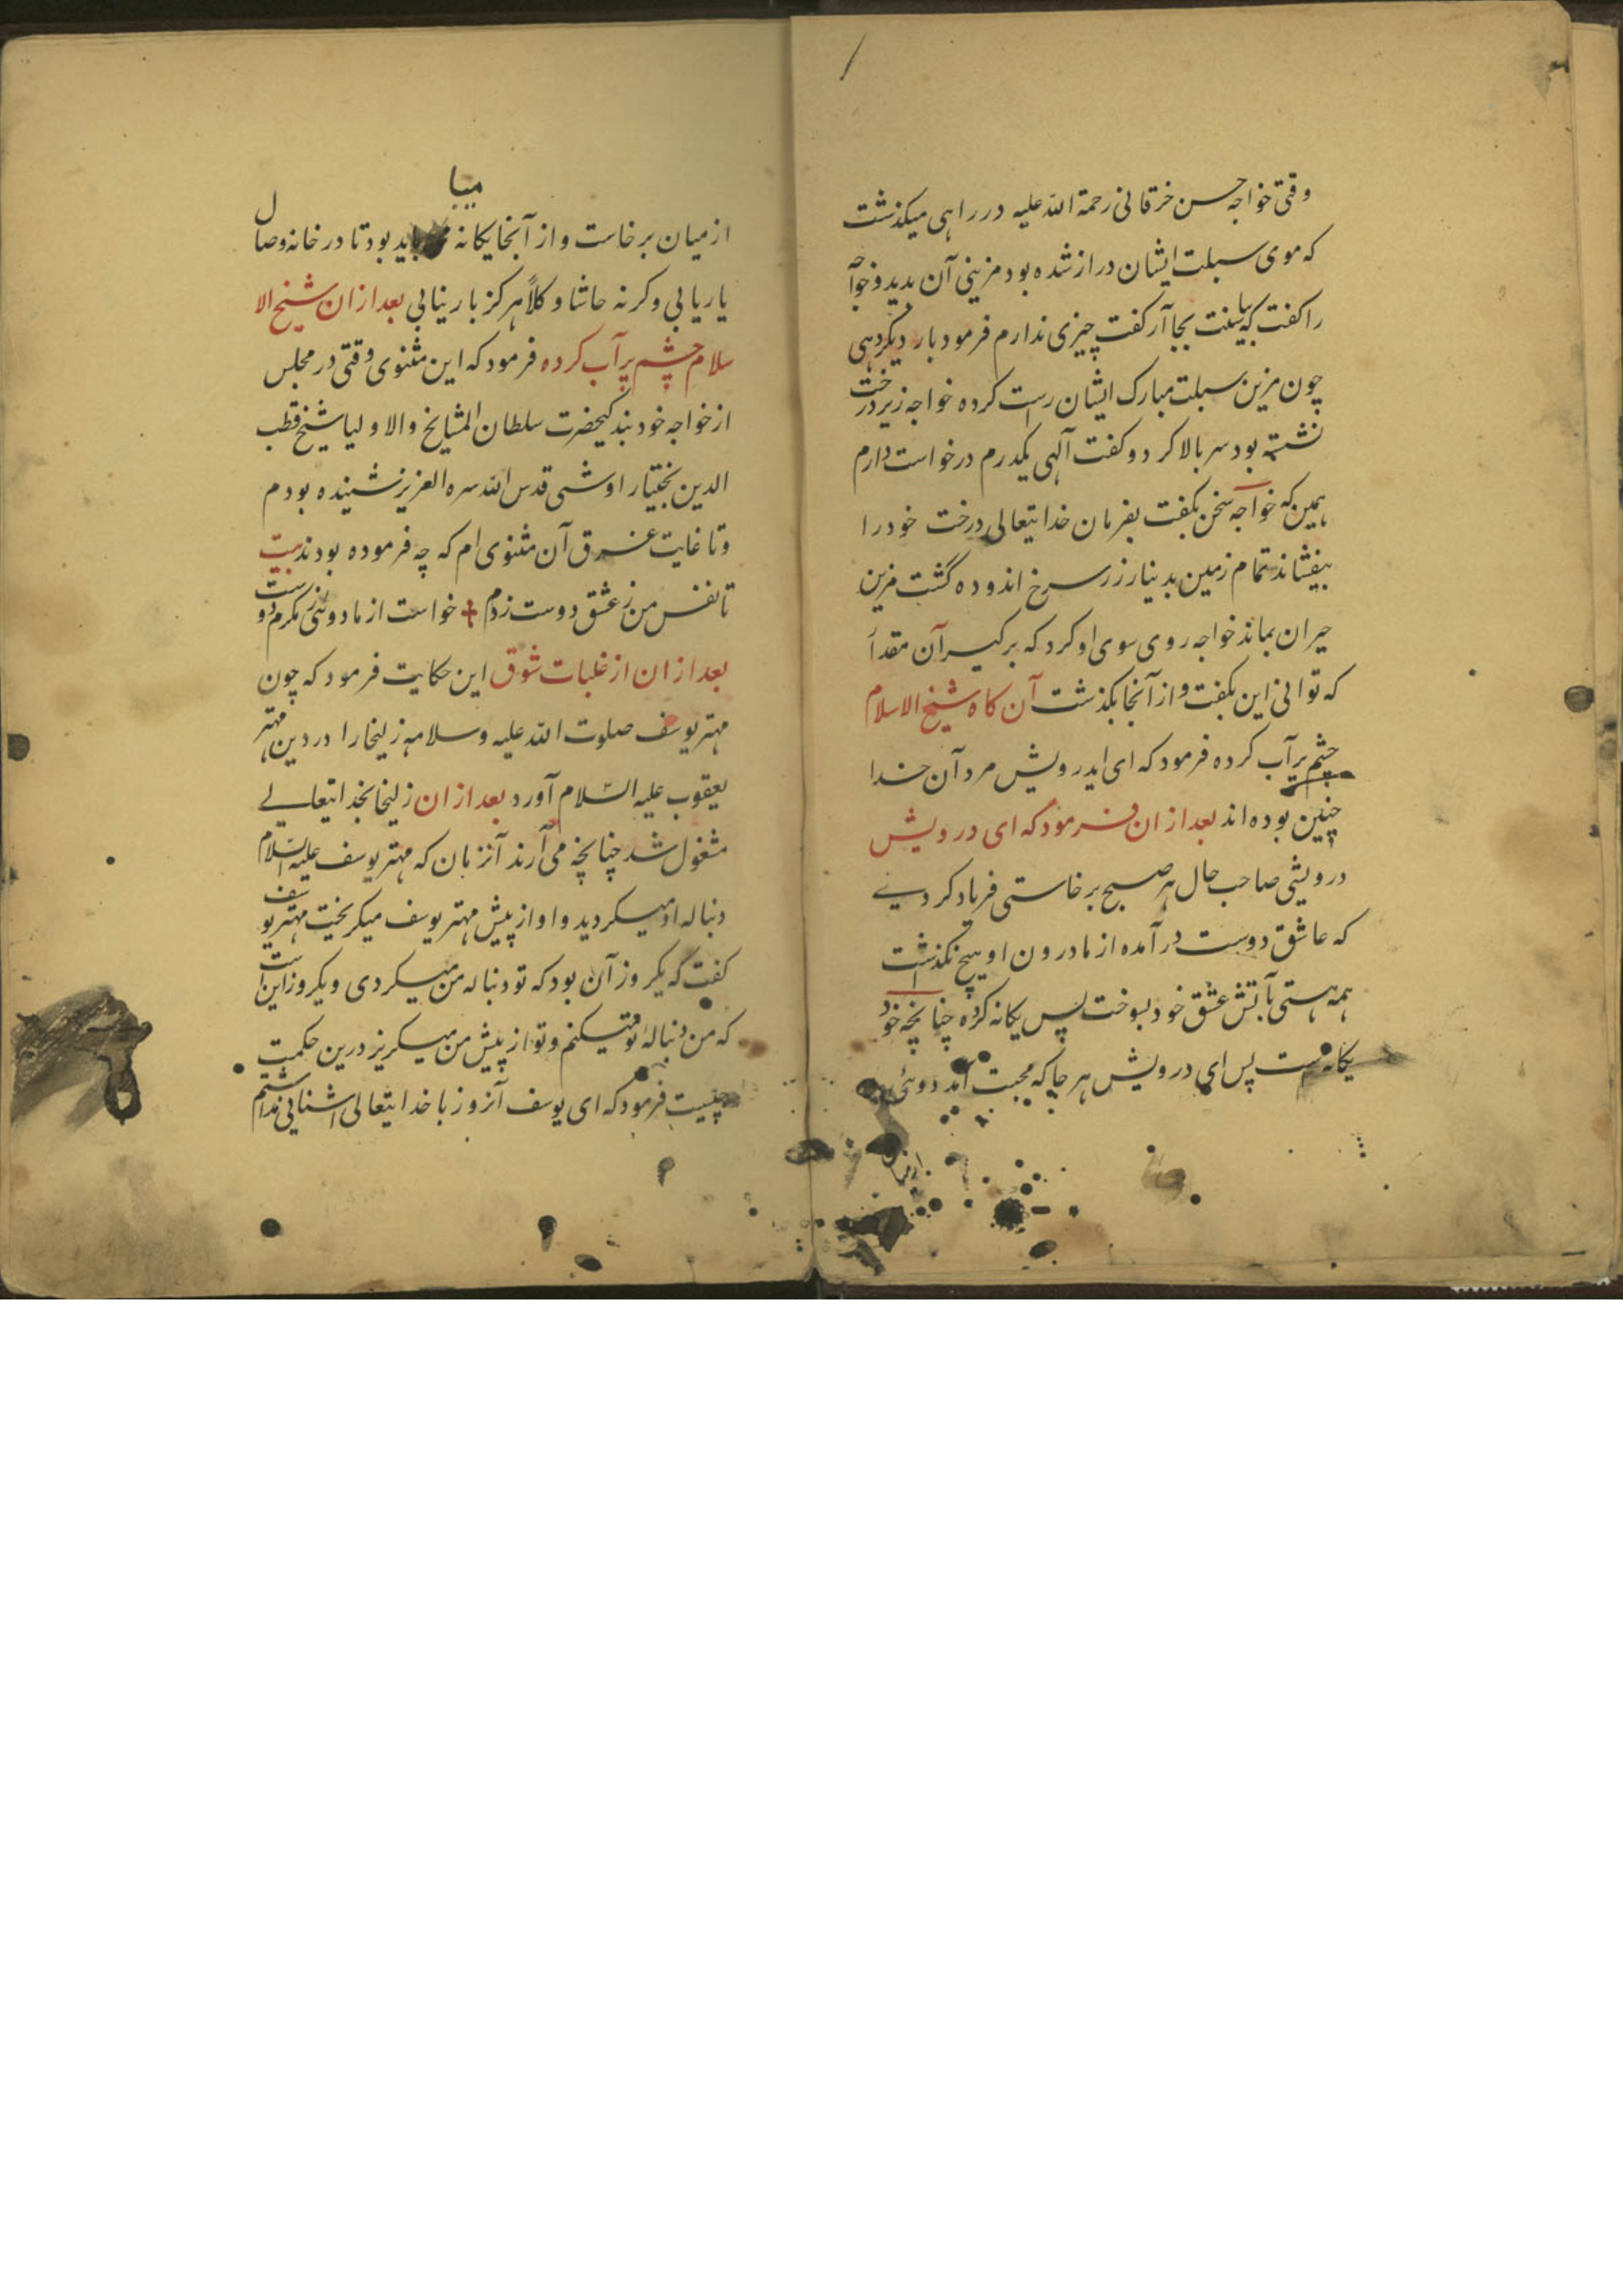 وقتی خواجه حسن خرقانی رحمة الله علیه در راهی میکذشت
که موی سبلت ایشان دراز شده بود مزینی آن بدید و خواجه
را کفت که بیا سنت بجا آر کفت چیزی ندارم فرمود بار دیکر دهی
چون مزین سبلت مبارک ایشان راست کرده خواجه زیر درخت
نشسته بود سر بالا کرد و کفت آلهی یکدرم درخواست دارم
همین که خواجه سخن بکفت بفرمان خدایتعالی درخت خود را
بیفشاند تمام زمین بدینار زر سرخ اندوده کشت مزین
حیران بماند خواجه روی سوی او کرد که برکیر آن مقدار
که توانی این بکفت و از آنجا بکذشت آن کاه شیخ الاسلام
چشم پر آب کرده فرمود که ای ایدرویش مردآن خدا
چنین بوده اند بعد ازان فرمود که ای درویش
درویشی صاحب حال هر صبح برخاستی فریاد کردی
که عاشق دوست درآمده از ما درون او هیچ نکذشت
همه هستی بآتش عشق خود بسوخت پس یکانه کرده چنانچه خود
یکانه است پس ای درویش هر جا که محبت آمد دوئی
از میان
میبا
از میان برخاست و از آنجا یکانه باید بود تا در خانه وصال
یار یابی وکرنه حاشا و کلاً هرکز بار نیابی بعد ازان شیخ الا
سلام چشم پر آب کرده فرمود که این مثنوی وقتی در مجلس
از خواجه خود بندکیحضرت سلطان المشایخ والاولیا شیخ قطب
الدین بختیار اوشی قدس الله سره العزیز شنیده بودم
و تا غایت غرق آن مثنوی ام که چه فرموده بودند بیت
تا نفس من ز عشق دوست زدم + خواست از ما دوئی مکرم دوست
بعد ازان از غلبات شوق این حکایت فرمود که چون
مهتر یوسف صلوت الله علیه وسلامه زلیخا را در دین مهتر
یعقوب علیه السّلام آورد بعد ازان زلیخا بخدایتعالے
مشغول شد چنانچه می آرند آنزبان که مهتر یوسف علیه السّلام
دنباله او میکردید و او از پیش مهتر یوسف میکریخت مهتر یوسف
کفت که یکروز آن بود که تو دنباله من میکردی و یکروز این است
که من دنباله تو میکنم و تو از پیش من میکریز درین حکمت
چیست فرمود که ای یوسف آنروز با خدایتعالی اشنایی نداشتم